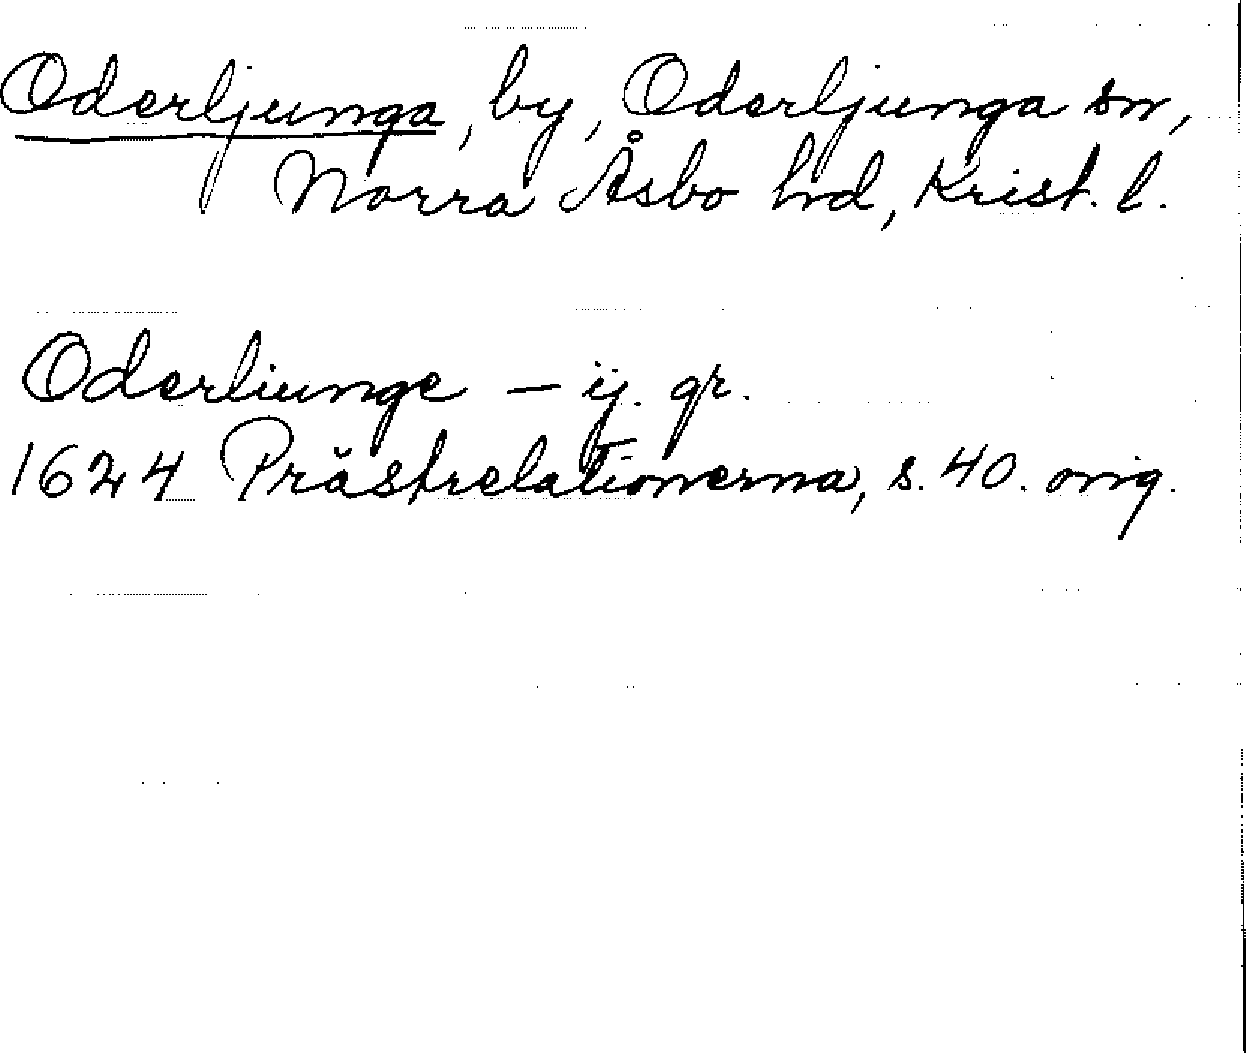 Oderljunga, by, Oderljunga sn,
Norra Åsbo hd, Krist. l.
Oderliunge — ij. gr.
1624 Prästrelationerna, s. 40. orig.